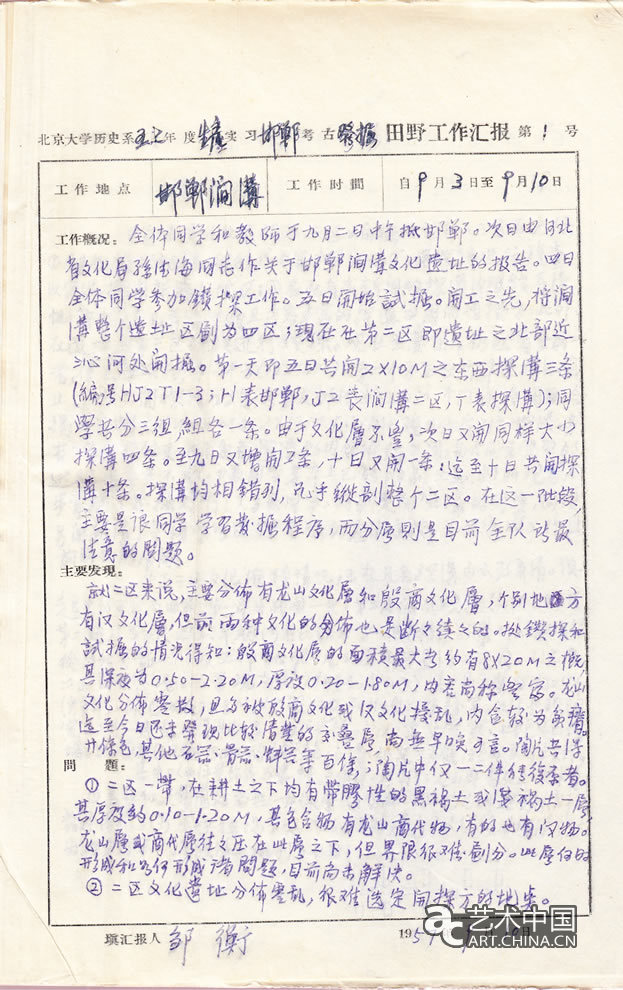 北京大学历史系五七年度生产实习邯郸考古发掘田野工作汇报第1号
工作地点 邯郸涧溝 工作时間 自9月3日至9月10日
工作概况:全体同学和教师于九月二日中午抵邯郸。次日由河北
省文化局孫德海同志作关于邯郸涧溝文化遗址的报告。四日
全体同学参加鑚探工作。五日開始試掘。開工之先,将涧
溝整个遗址区劃为四区;現在在第二区即遗址之北部近
沁河处開掘。第一天即五日共開2×10M之东西探溝三条
(編号HJ2T1-3;H表邯郸,J2表涧溝二区,T表探溝);同
學共分三组,組各一条。由于文化層不豐,次日又開同样大小
探溝四条。至九日又增開2条,十日又開一条;迄至十日共開探
溝十条。探溝均相錯列,几乎縱剖整个二区。在这一阶段,
主要是让同学学习发掘程序,而分层則是目前全队所最
注意的問題。
主要发现:
就二区来说,主要分佈有龙山文化層和殷商文化層,个别地方
有汉文化層,但前两种文化的分佈也是断々续々的。從鑚探和
試掘的情况得知:殷商文化层的面積最大者约有8×20M之概,
其深度为0.50-2.20M,厚度0.20-1.80M,内容尚称豐富。龙山
文化分佈零散,且多被殷商文化或汉文化擾乱,内含較为貧瘠。
迄至今日还未發現比較清楚的交疊层,尚無早晚可言。陶片共得
其他石器、骨器、蚌器等百件,;陶片中仅一二件能復原者。
問題:
①二区一带,在耕土之下均有带膠性的黑褐土或黄褐土一層
其厚度约0.10-1.20M,其包含物有龙山商代物,有的也有汉物。
龙山層或商代層往々压在此层之下,但界限很难劃分。此层何时
形成和如何形成诸問題,目前尚未解决。
②二区文化遗址分佈零乱,很难选定開探方的地点。
填汇报人 邹衡 195 日
艺术中国
ART.CHINA.CN